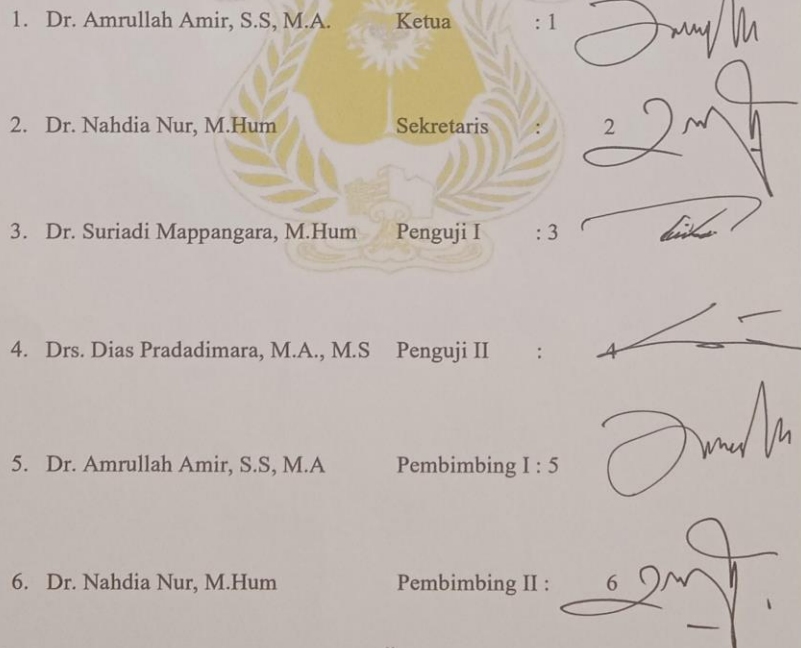 1. Dr. Amrullah Amir, S.S, M.A. Ketua : 1
2. Dr. Nahdia Nur, M.Hum Sekretaris : 2
3. Dr. Suriadi Mappangara, M.Hum Penguji I : 3
4. Drs. Dias Pradadimara, M.A., M.S Penguji II : 4
5. Dr. Amrullah Amir, S.S, M.A Pembimbing I : 5
6. Dr. Nahdia Nur, M.Hum Pembimbing II : 6